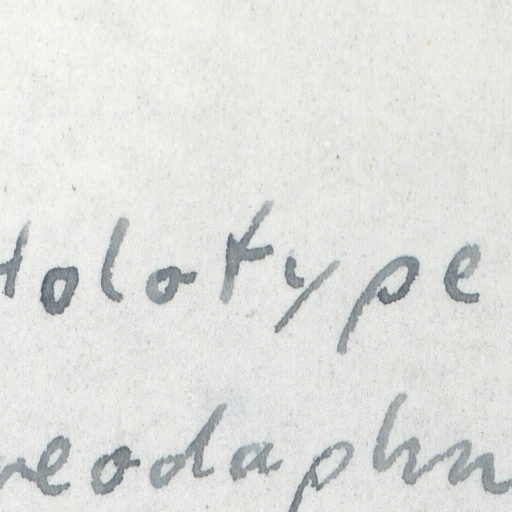 Holotype
reodaphn